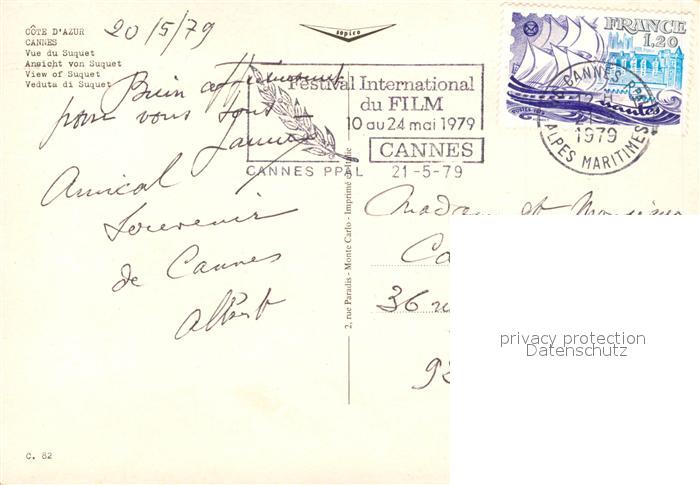 CÔTE D'AZUR
CANNES
Vue du Suquet
Ansicht von Suquet
View of Suquet
Veduta di Suquet
20/5/79
sopico
Bien affectueusement
pour vous tous
Amical
souvenir
de Cannes
Albert
Festival International
du FILM
10 au 24 mai 1979
CANNES
CANNES PPAL 21-5-79
FRANCE
1,20
nantes
CANNES PPAL
12 H
21-5
1979
ALPES MARITIMES
2, rue Paradis - Monte Carlo - Imprimé en Italie
Madame et Monsieur
Ca
36
92
privacy protection
Datenschutz
C. 82